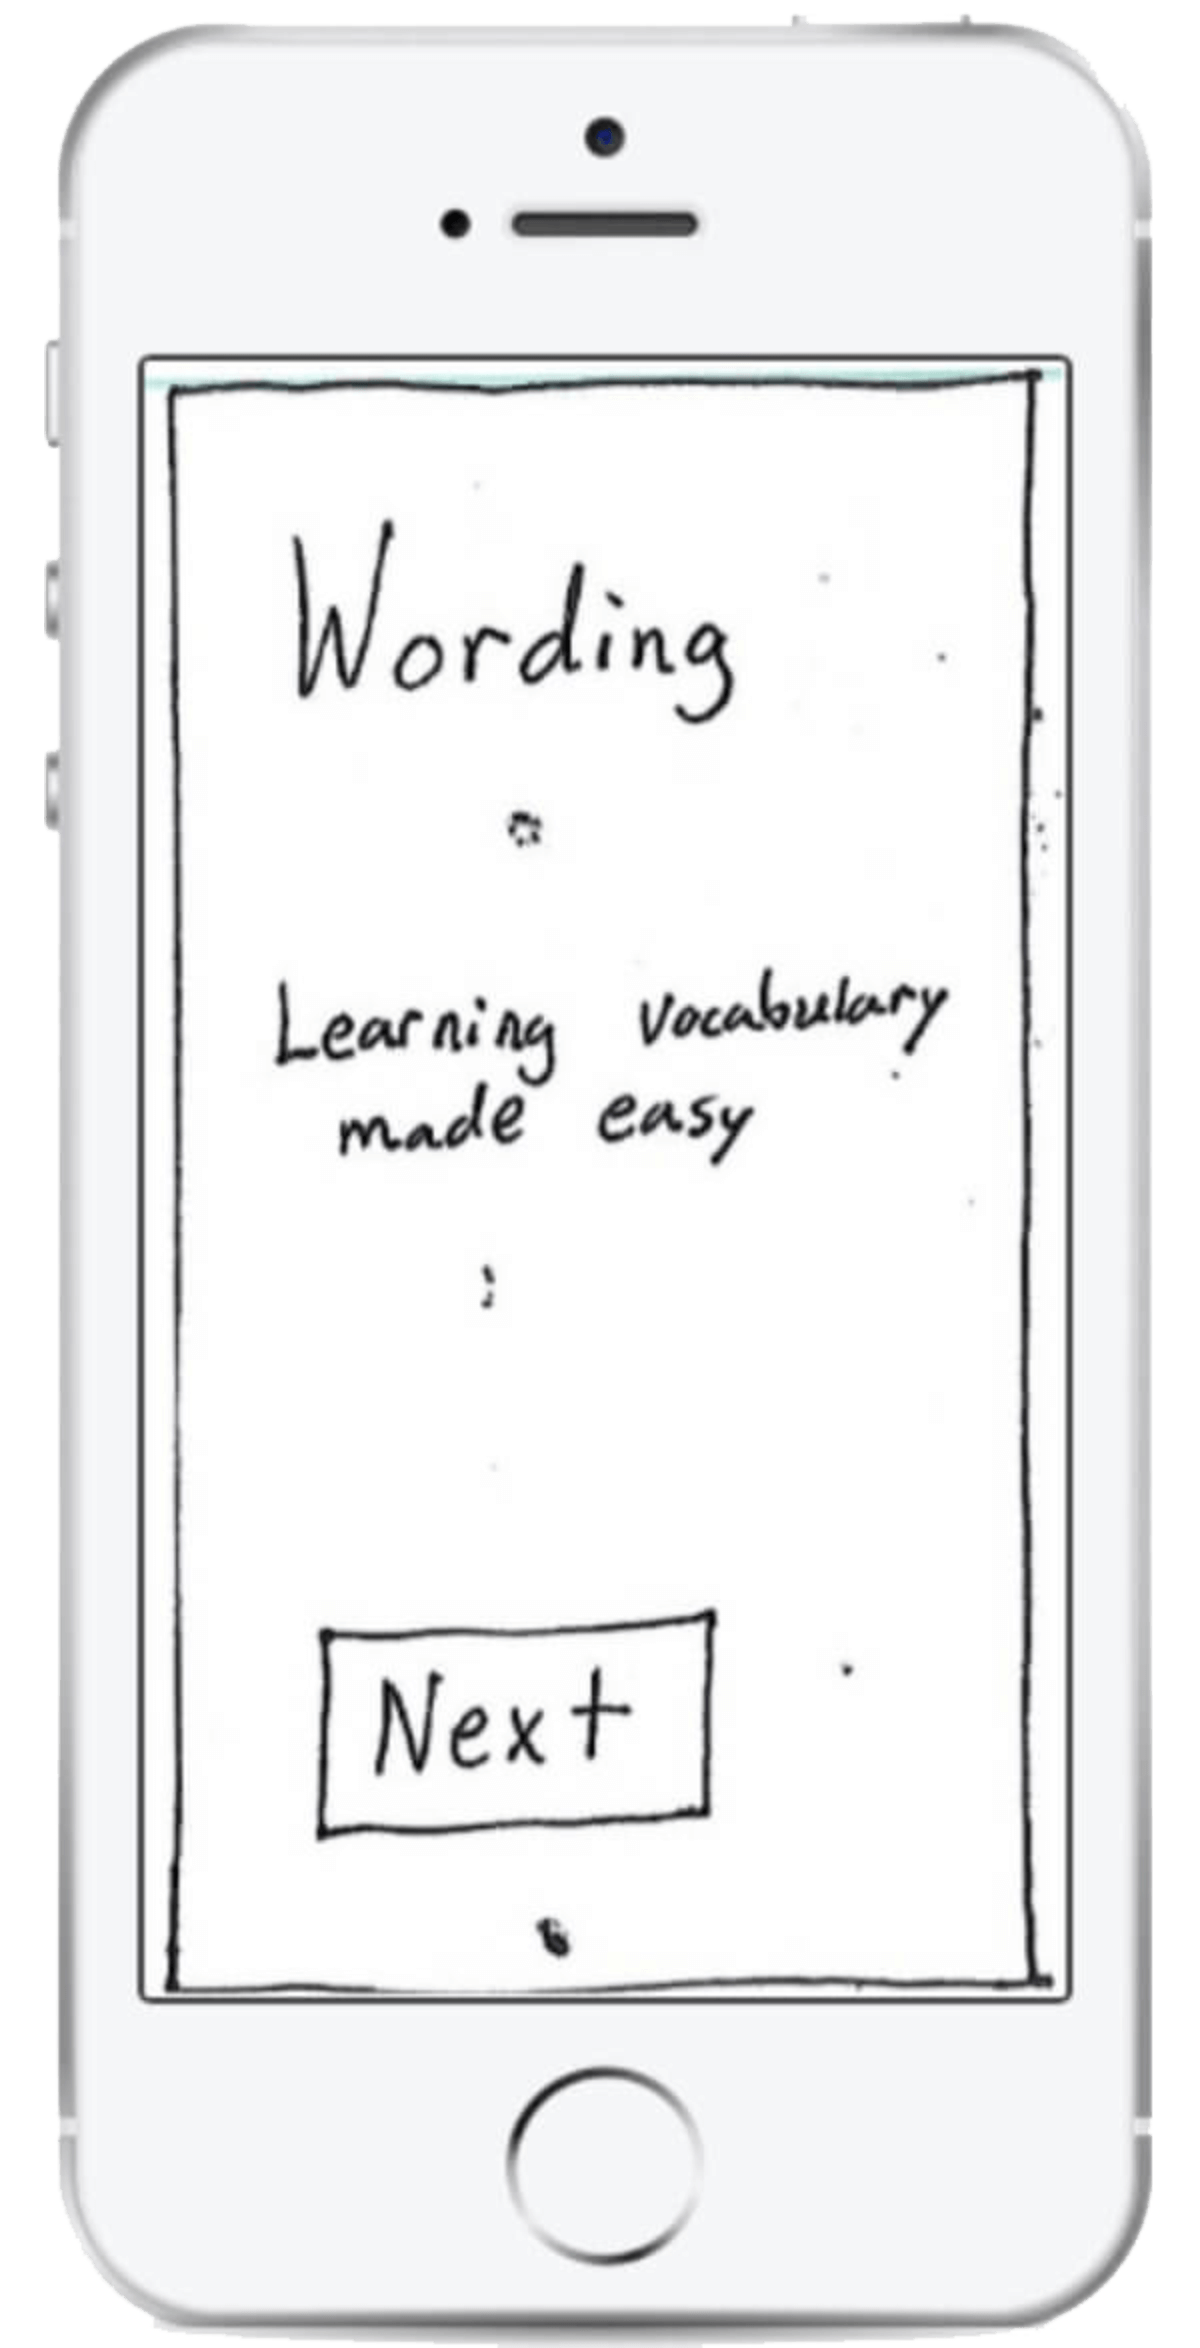 Wording
Learning vocabulary
made easy
Next